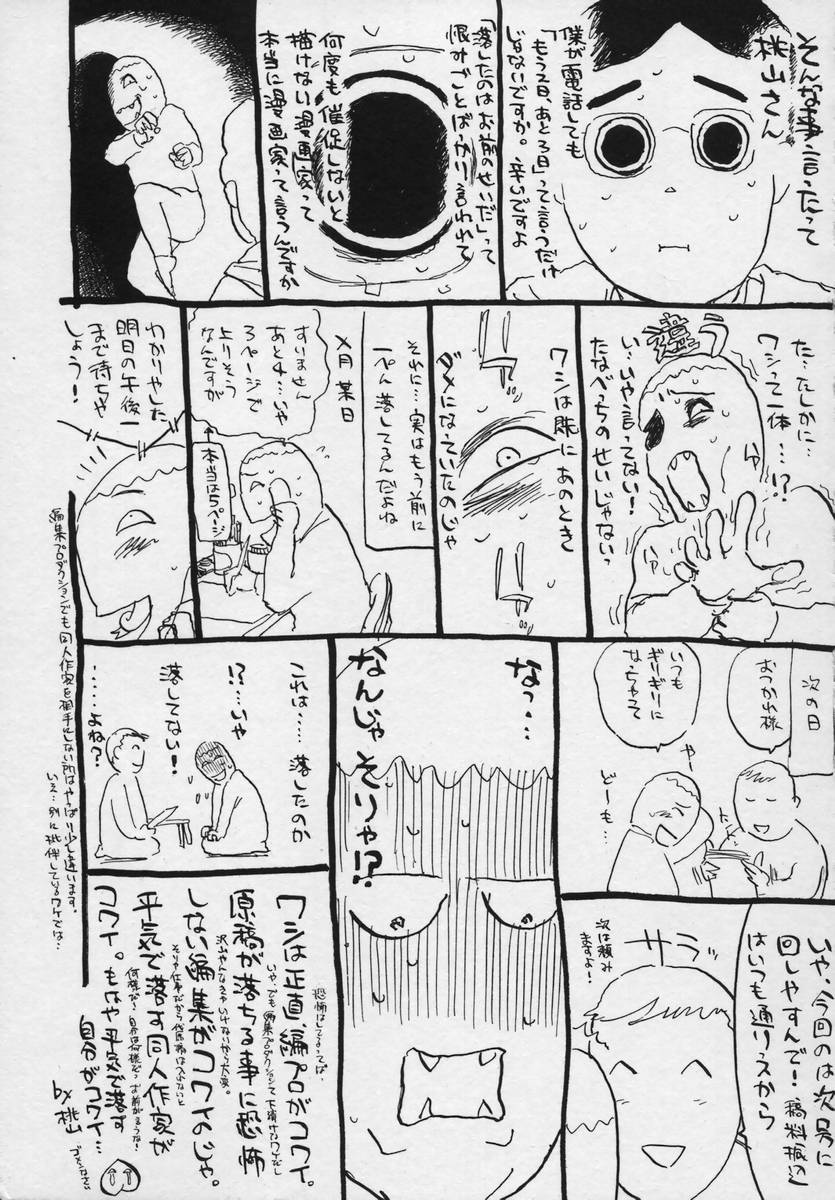 そんな事言ったって
桃山さん
僕が電話しても
「もう2日、あと3日」って言うだけ
じゃないですか。辛いですよ
「落したのはお前のせいだ」って
恨みごとばっかり言われて
何度も催促しないと
描けない漫画家って
本当に漫画家って言うんですか
違う
た…たしかに…
ワシって一体…!?
い…いや言ってない!
たなべっちのせいじゃないっ
ワシは既にあのとき
ダメになっていたのじゃ
それに…実はもう前に
一ぺん落してるんだよね
×月某日
すいません
あと4…いや
3ページで
上りそう
なんですが
↑本当は5ページ
わかりやした
明日の午後一
まで待ちや
しょう!
次の日
おつかれ様
いつも
ギリギリに
なっちゃって
やー
どーも…
いや、今回のは次号に
回しやすんで!稿料振込
はいつも通りっスから
サラッ
次は頼み
ますよー!
なっ…
なんじゃ そりゃ!?
これは……落したのか
!?……いや
落してない!
……よね?
ワシは正直、編プロがコワイ。
原稿が落ちる事に恐怖
しない編集がコワイのじゃ。
平気で落す同人作家が
コワイ。もはや平気で落す
自分がコワイ…
by 桃山
ゴメンなさい
編集プロダクションでも同人作家を相手にしない所はやっぱり少し違います。
いえ…別に批判しているワケでは…